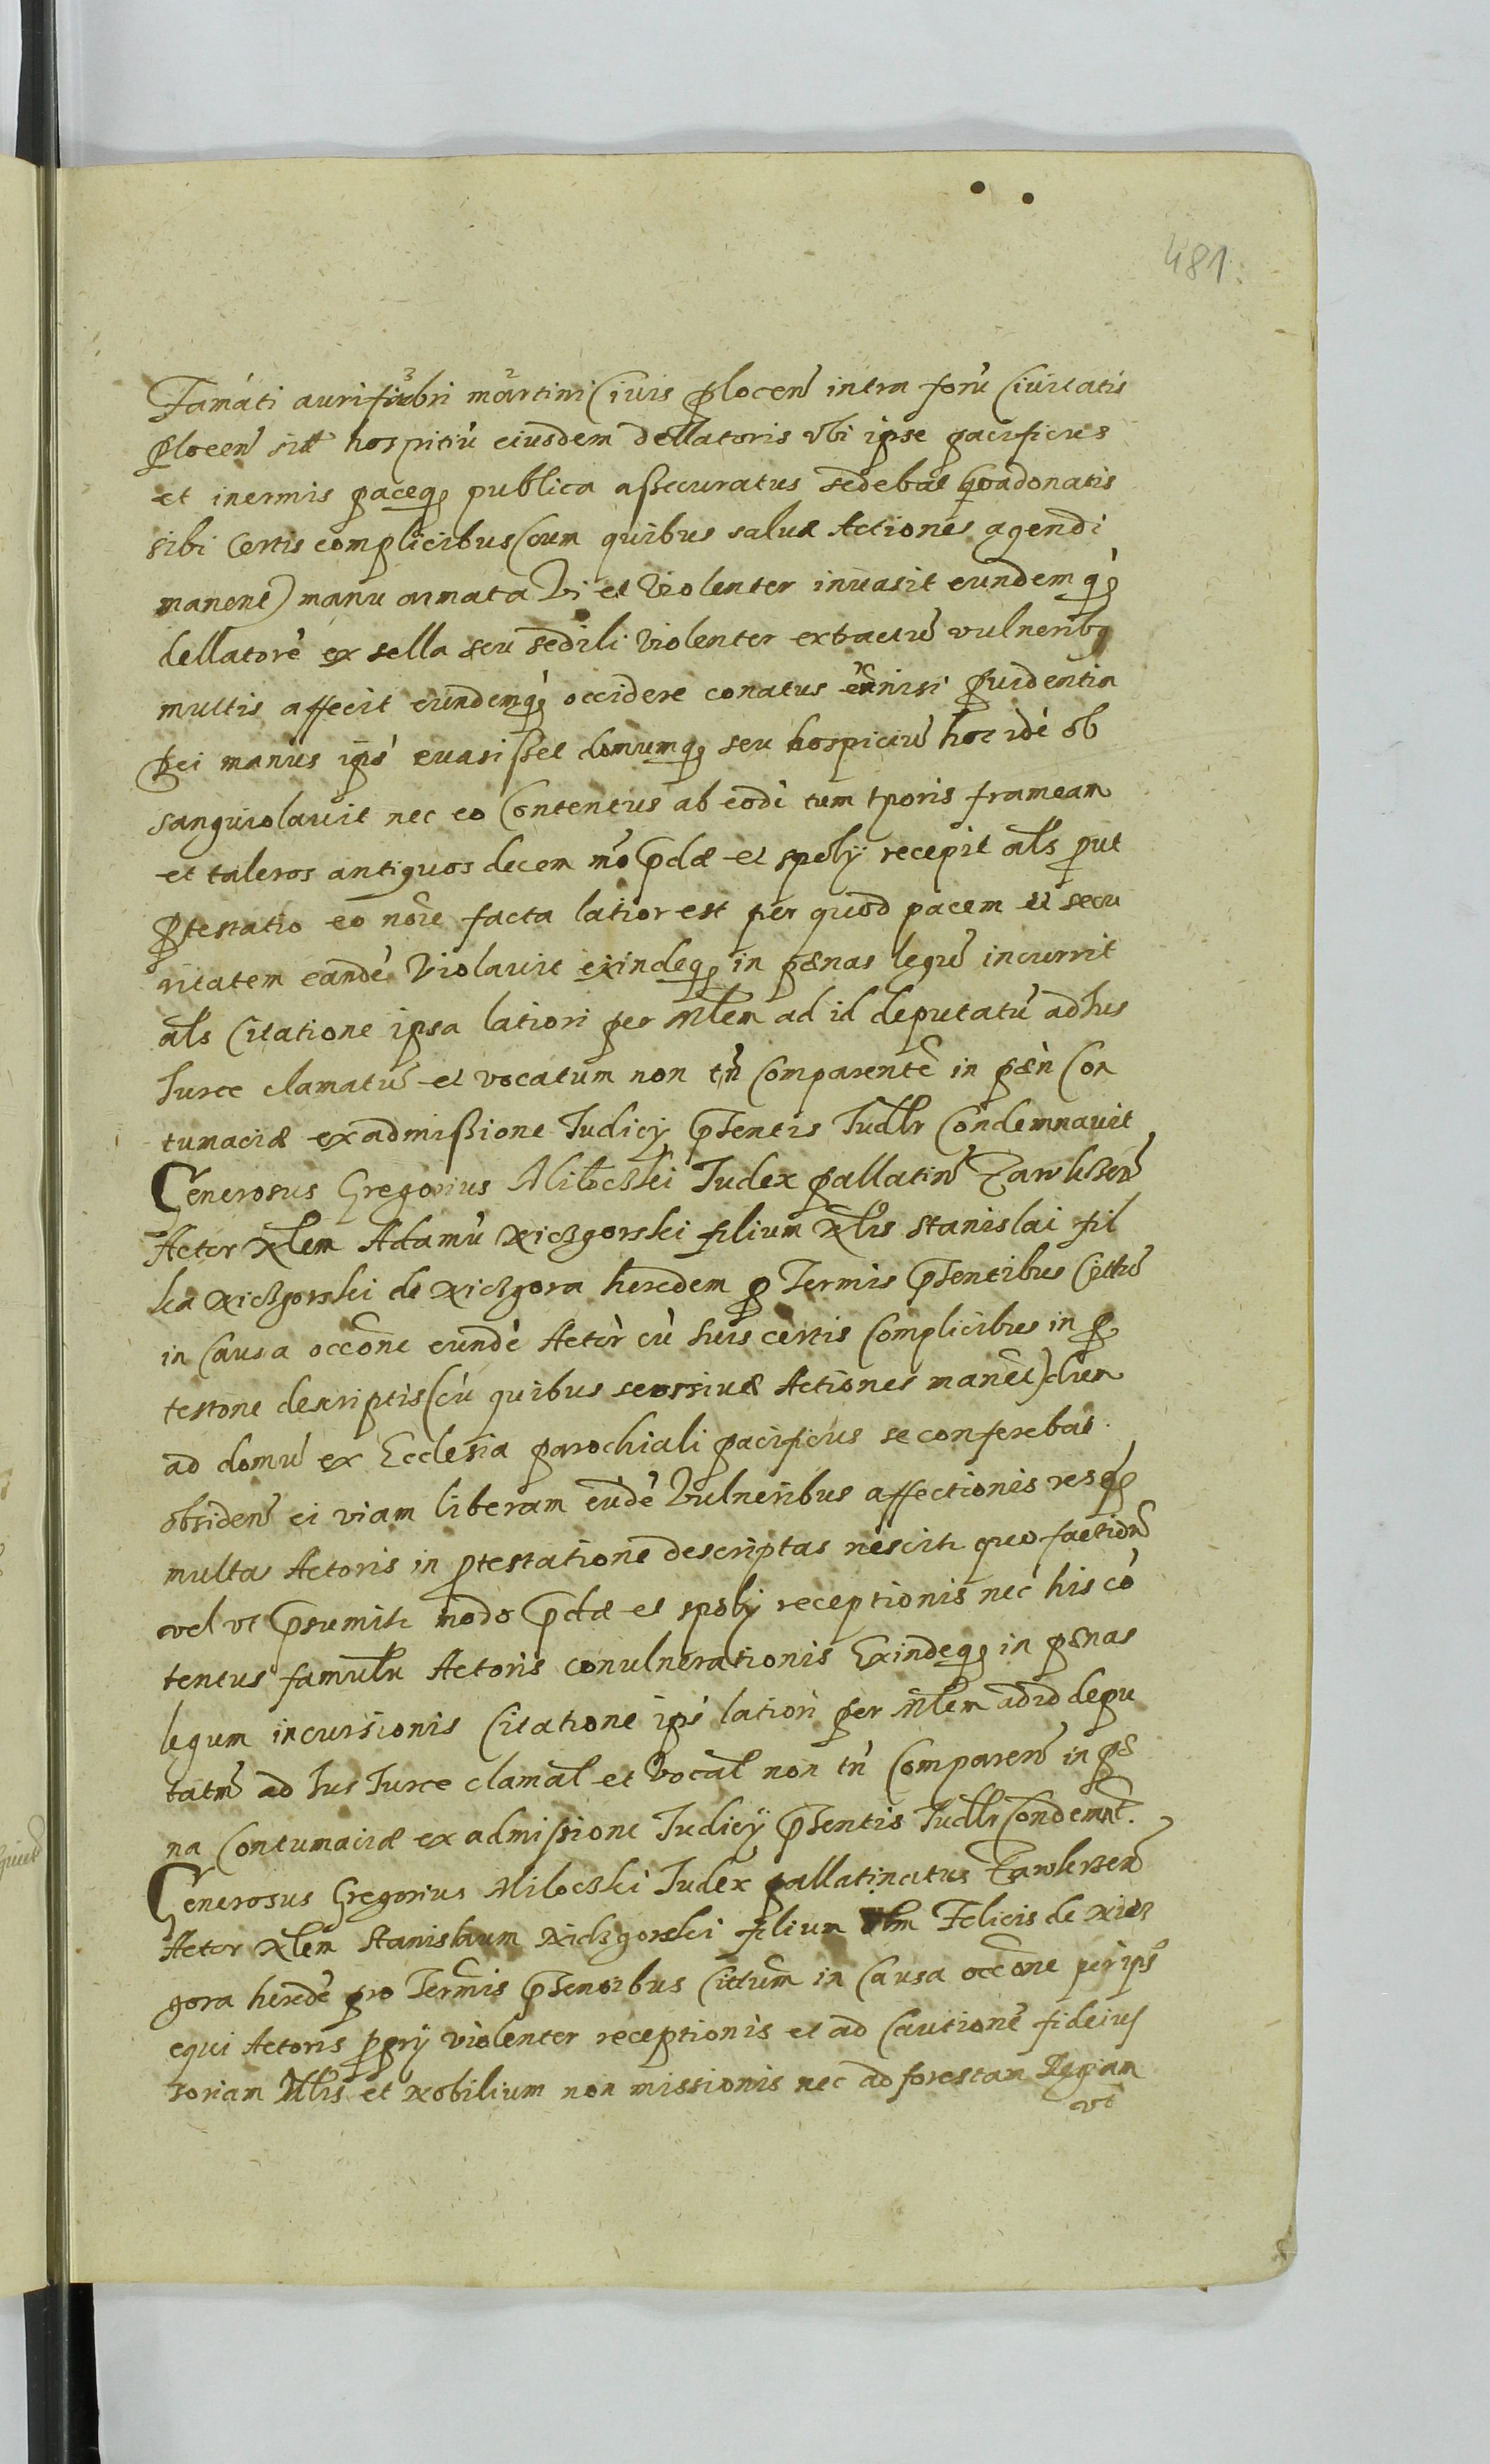 481.
Famati aurifabri martini Ciuis Plocen intra foru Ciuitatis
Plocen sitt hospitiu eiusdem dellatoris vbi ipse pacificus
et inermis paceq publica assecuratus sedebat coadonatis
sibi Certis complicibus (cum quibus saluæ Actiones agendi
manent) manu armata Vi et Violenter inuasit eundemq
dellatore ex sella seu sedili Violenter extractu vulneribq
multis affecit eundemq occidere conatus nisi puidentia
Dei manus ips euasisset domumq seu hospiciu hoc ide ob
sanguiolauit nec eo Contentus ab eode tum tporis frameam
et taleros antiquos decem mo pdæ et spolÿ recepit als put
ptestatio eo noie facta latior est per quod pacem et secu
ritatem eande Violauit exindeq in pænas legu incurrit
als Citatione ipsa latiori per Mlem ad id deputatu ad Jus
Iurce clamatu et vocatum non tn Comparente in pæn Con
tumaciæ ex admissione Iudicÿ pntis Iudlr Condemnauit
Generosus Gregorius Miloczki Iudex pallatin Zawkrzen
Actor Nlem Adamu Niczgorski filium Nlis Stanislai fil
ka Niczgorski de Niczgora heredem p Termis pntibus Cittu
in Causa occone eunde Actor cu suis certis Complicibus in p
testone descriptis (cu quibus seorsiuæ Actiones manet) dum
ad domu ex Ecclesia parochiali pacificus se conferebat
obsiden ei viam liberam eude Vulneribus affectionis resq
multas Actoris in ptestatione descriptas nescitr quo faction
vel vt psumitr modo pdæ et spolÿ receptionis nec his co
tentus famulu Actoris conulnerationis Exindeq in pænas
legum incursionis Citatione ips latiori per Mlem ad id depu
tatu ad Jus Iurce clamat et Vocat non tn Comparen in pæ
na Contumaciæ ex admissione Iudicÿ pntis Iudlr Condemnt.
Generosus Gregorius Miloczki Iudex pallatinatus Zawkrzen
Actor Nlem Stanislaum Niczgorski filium olim Felicis de Nicz
gora herede pro Termis pntibus Cittum in Causa occone per ips
equi Actoris pprÿ violenter receptionis et ad Cautione fideius
soriam Nlis et Nobilium non missionis nec ad forestam Regiam
vt